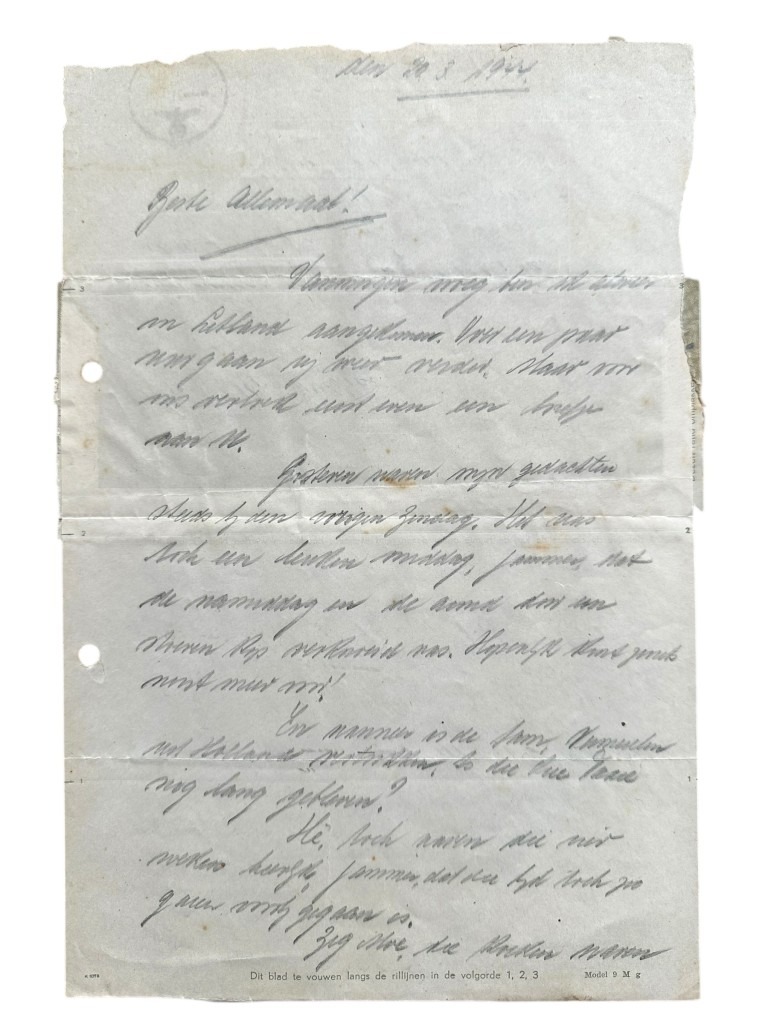 den 20 3 1944.
Beste Allemaal!
Vanmorgen vroeg ben ik alweer
in Letland aangekomen. Over een paar
uur gaan wij weer verder. Maar voor
ons vertrek eerst even een briefje
aan U.
Gisteren waren mijn gedachten
steeds bij den vorigen Zondag. Het was
toch een leuken middag, jammer, dat
de namiddag en de avond door een
verknoeid was. Hopelijk komt zoiets
nooit meer voor!
En wanneer is de fam.
uit Holland vertrokken. Is die
nog lang gebleven?
Hè, toch waren die vier
weken heerlijk, jammer, dat die tijd toch zoo
gauw voorbij gegaan is.
Zeg Moe, die koeken waren
Dit blad te vouwen langs de rillijnen in de volgorde 1, 2, 3 Model 9 M g
3 3
2 2
1 1